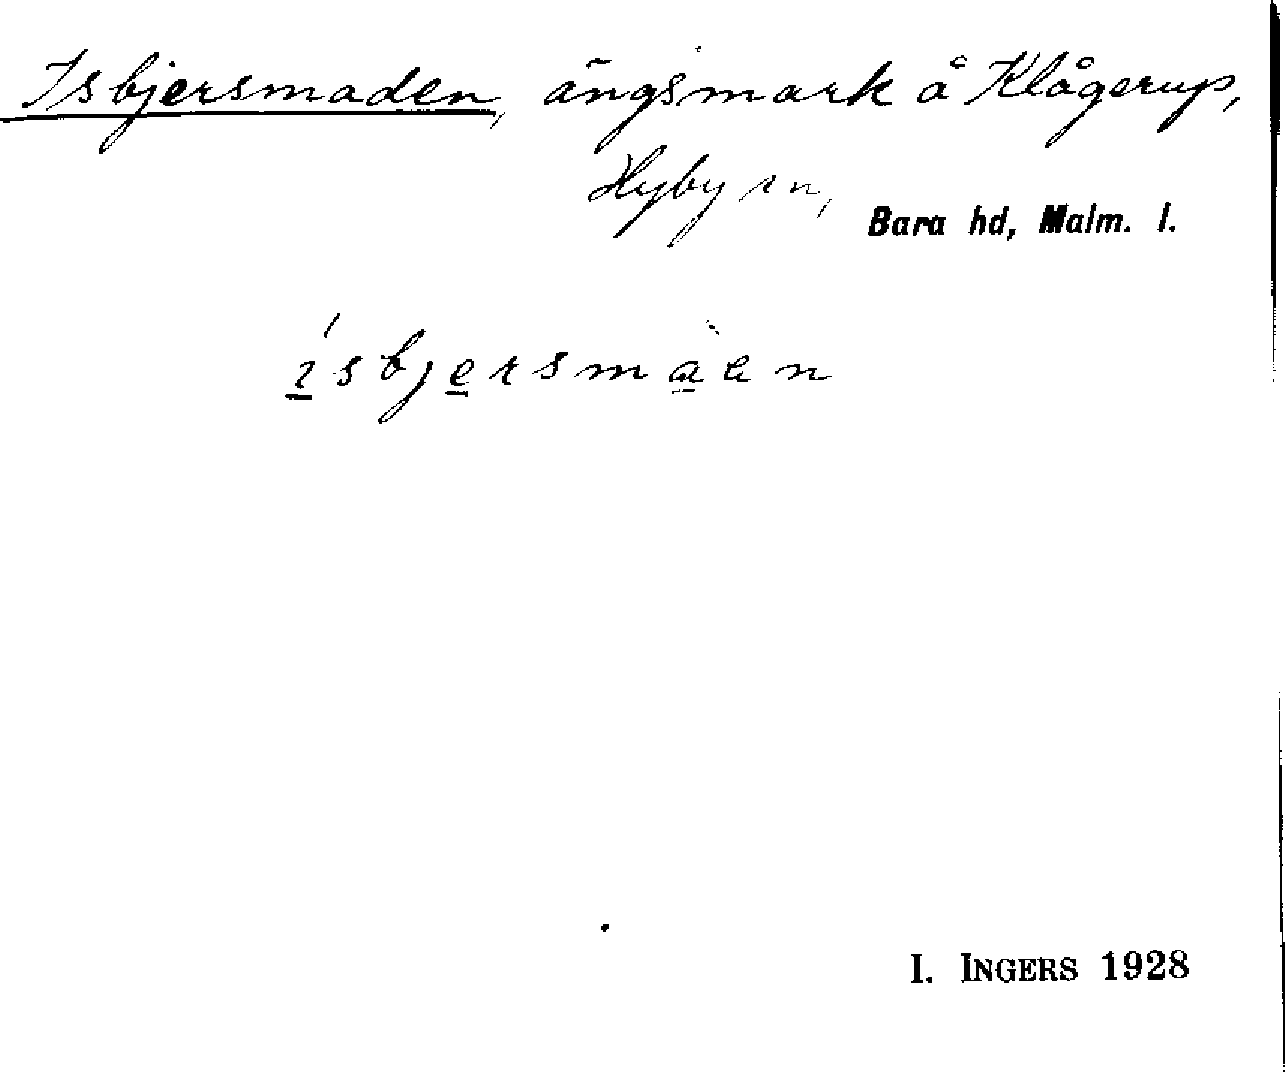 Isbjersmaden, ängsmark å Klågerup,
Hyby sn, Bara hd, Malm. l.
ísbjersmàen
I. INGERS 1928